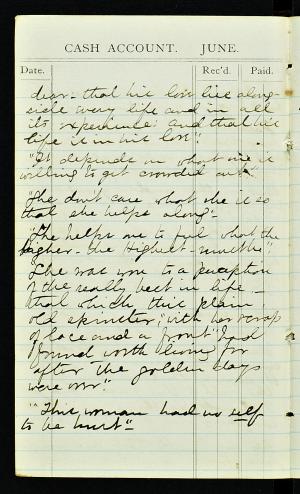 CASH ACCOUNT. JUNE.
Date. Rec'd. Paid.
dear- that his love live along-
side every life and in all
its experience: and that his
life is in his love".
"It depends on what one is
willing to get crowded out".
"She don't care what she is so
that she helps along"-
"She helps me to feel what the
higher - the Highest - must be".
She was won to a perception
of the really best in life -
that which this plain
old spinster, with her scraps
of lace and a front" had
found worth living for
after the golden days
were over".
"This woman had no self
to be hurt"-